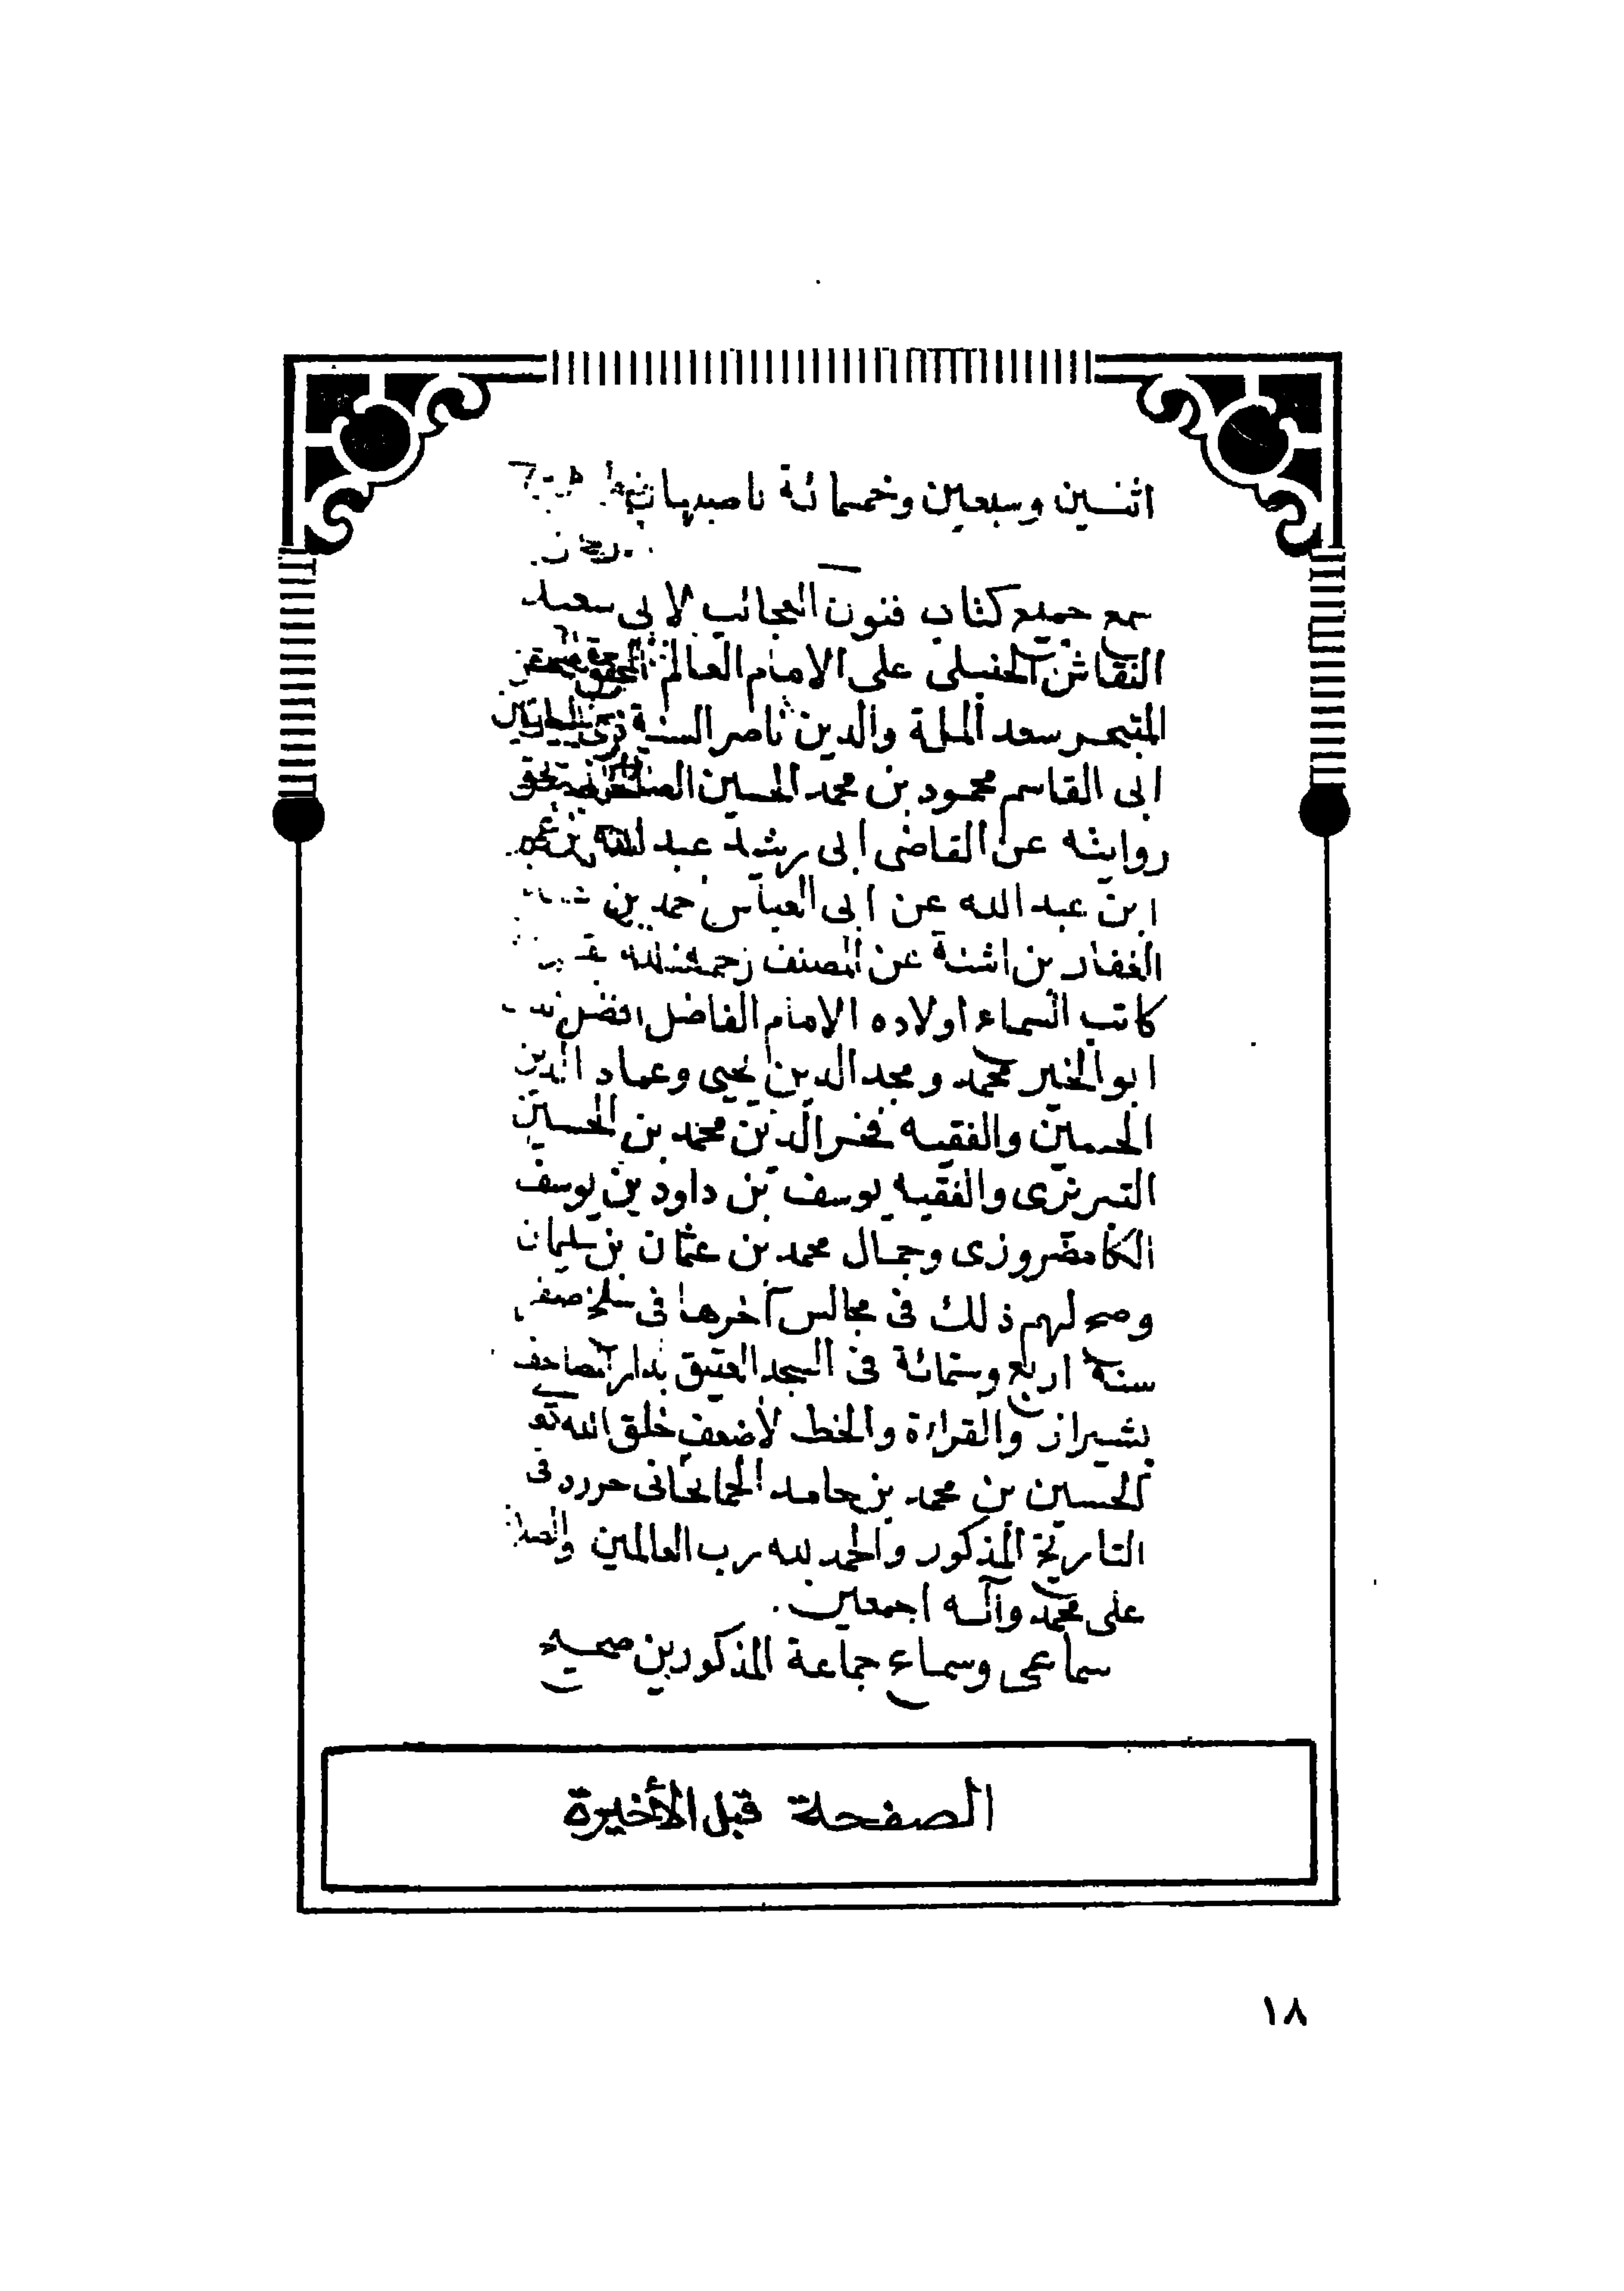 اثنين وسبعين وخمسمائة باصبهان
سمع جميع كتاب فنون العجائب لابى سعيد
النقاش الحنبلى على الامام العالم
المتبحر سعد الملة والدين ناصر السنة
ابى القاسم محمود بن محمد الحسين
روايته عن القاضى ابى رشيد عبد الله
ابن عبد الله عن ابى العباس حمد بن
الغفار بن اشتة عن المصنف رحمة الله
كاتب السماء اولاده الامام الفاضل افضل
ابو الخير محمد ومجد الدين يحيى وعماد الدين
الحسين والفقيه فخر الدين محمد بن الحسين
التبريزى والفقيه يوسف بن داود بن يوسف
الكامضروزى وجمال محمد بن عثمان بن سليمان
وصح لهم ذلك فى مجالس آخرها فى سلخ صفر
سنة اربع وستمائة فى المسجد العتيق بدار المصاحف
بشيراز والقراءة والخط لأضعف خلق الله تع
الحسين بن محمد بن حامد فى
التاريخ المذكور والحمد لله رب العالمين والصلاة
على محمد وآله اجمعين.
سماعى وسماع جماعة المذكورين صحيح
الصفحة قبل الأخيرة
١٨